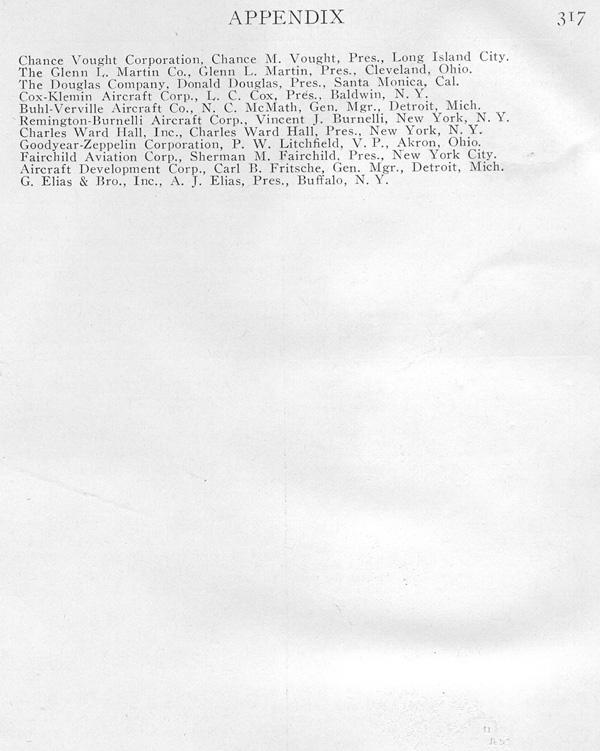 APPENDIX 317
Chance Vought Corporation, Chance M. Vought, Pres., Long Island City.
The Glenn L. Martin Co., Glenn L. Martin, Pres., Cleveland, Ohio.
The Douglas Company, Donald Douglas, Pres., Santa Monica, Cal.
Cox-Klemin Aircraft Corp., L. C. Cox, Pres., Baldwin, N. Y.
Buhl-Verville Aircraft Co., N. C. McMath, Gen. Mgr., Detroit, Mich.
Remington-Burnelli Aircraft Corp., Vincent J. Burnelli, New York, N. Y.
Charles Ward Hall, Inc., Charles Ward Hall, Pres., New York, N. Y.
Goodyear-Zeppelin Corporation, P. W. Litchfield, V. P., Akron, Ohio.
Fairchild Aviation Corp., Sherman M. Fairchild, Pres., New York City.
Aircraft Development Corp., Carl B. Fritsche, Gen. Mgr., Detroit, Mich.
G. Elias & Bro., Inc., A. J. Elias, Pres., Buffalo, N. Y.